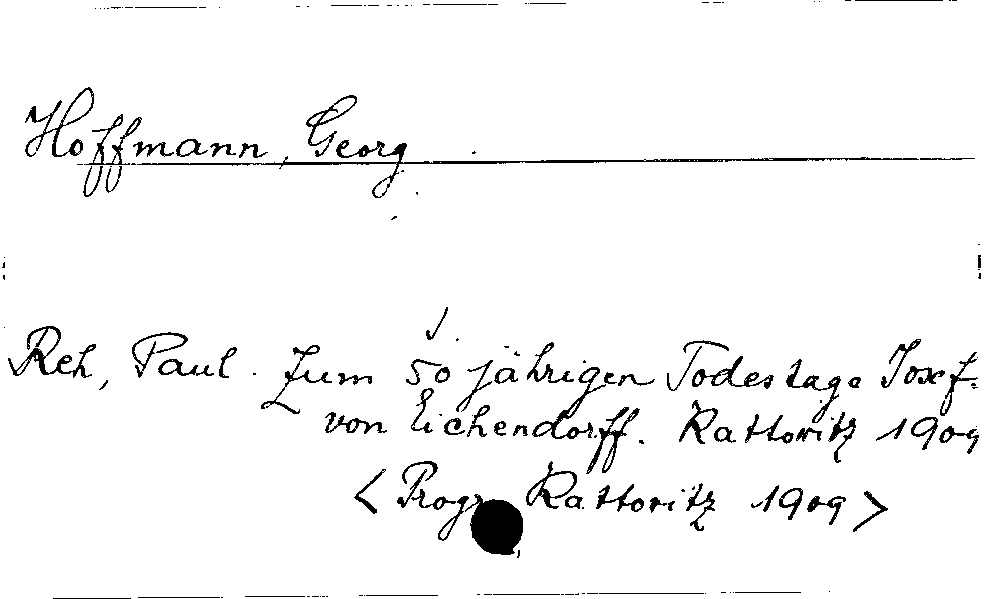 Hoffmann, Georg
Reh, Paul. Zum 50 jährigen Todestage Josef
von Eichendorff. Kattowitz 1909
< Progr. Kattowitz 1909 >